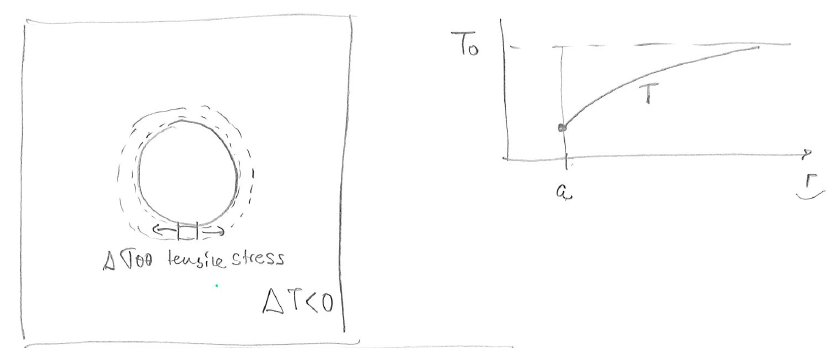 Δσθθ tensile stress
ΔT<0
T₀
T
a
r